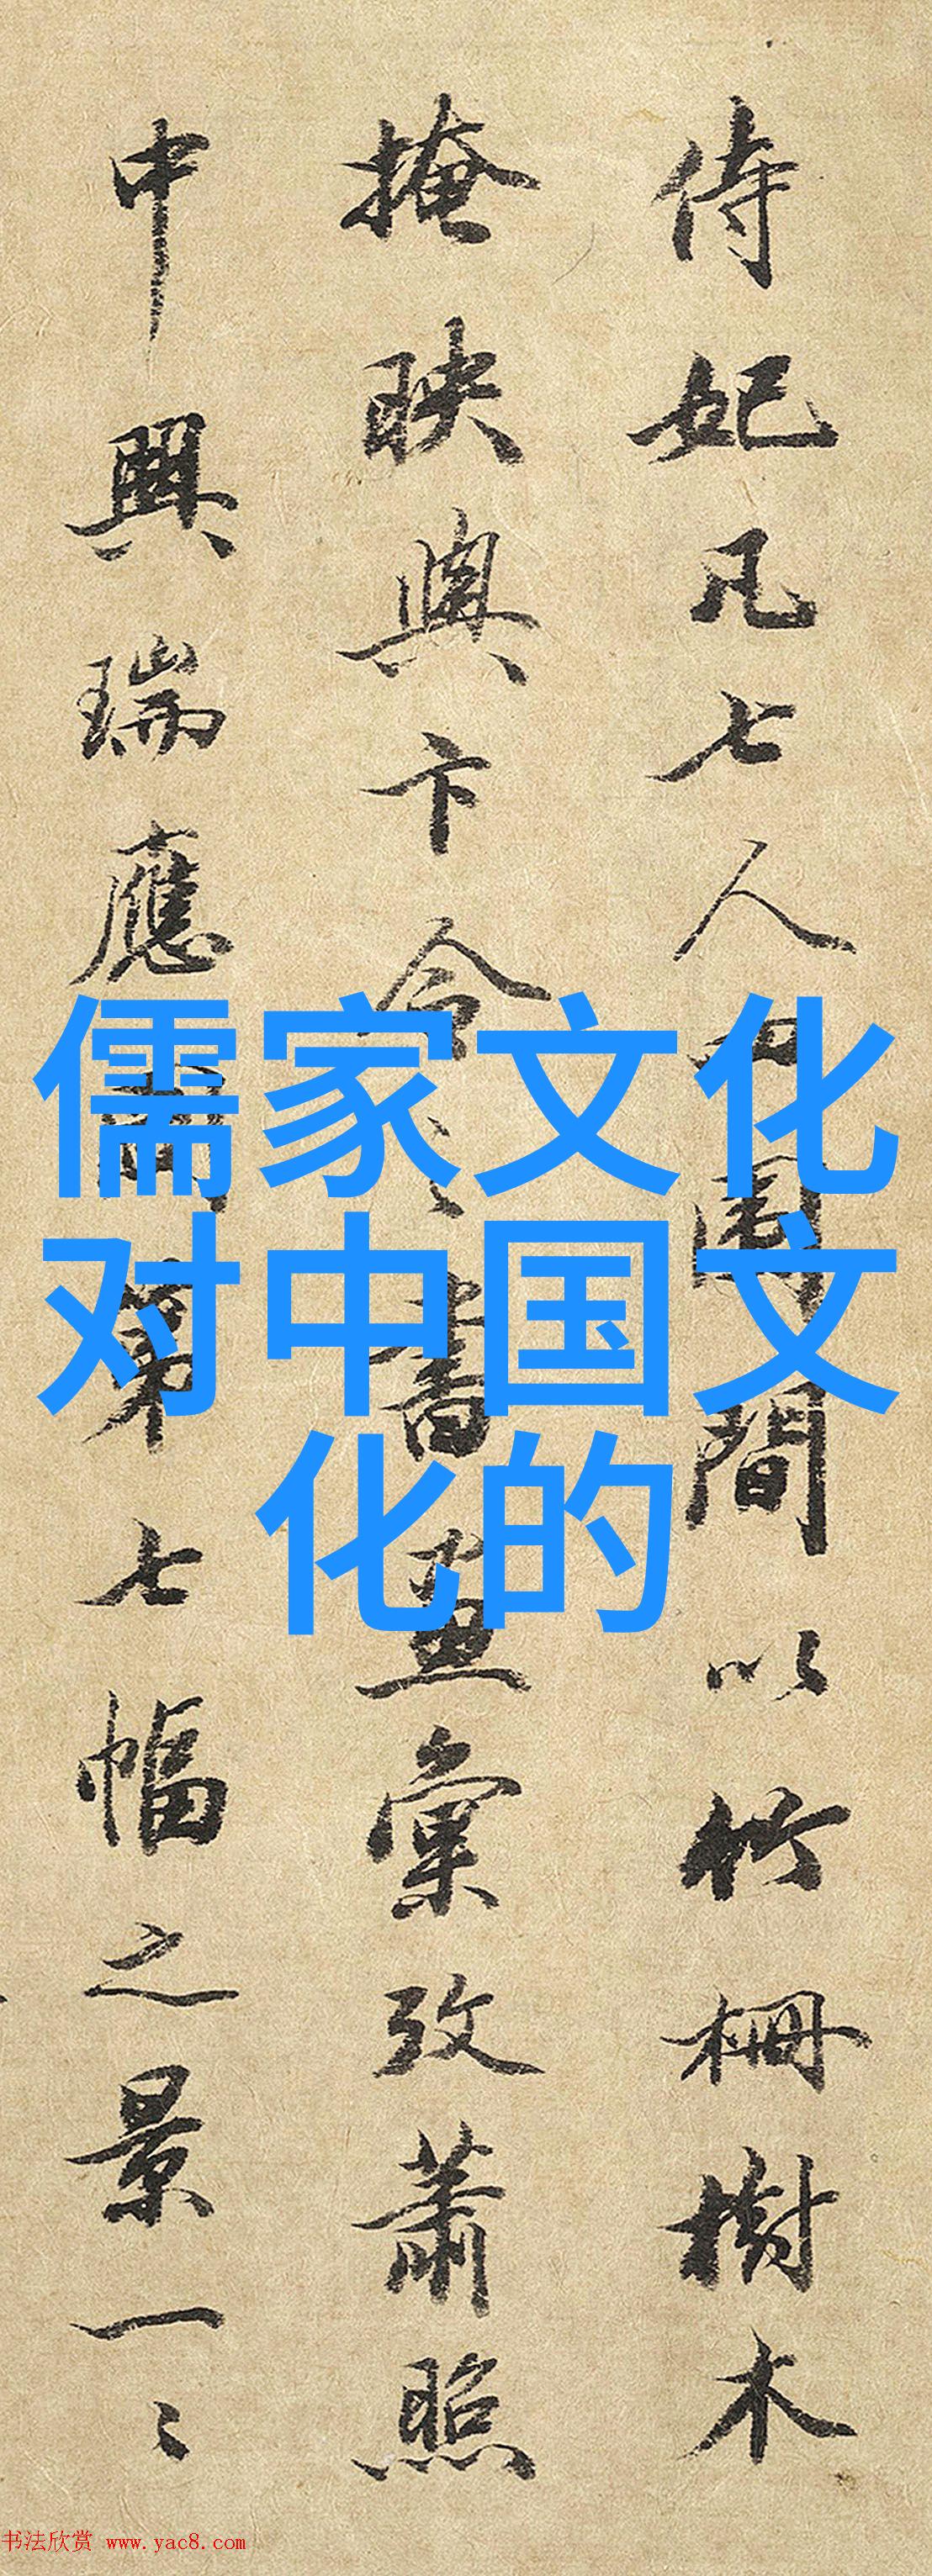 侍妃凡七人間以竹柵樹木
掩映與卞令書畫彙攷蕭照
中興瑞應圖第七幅之景一〻
儒家文化
对中国文
化的
书法欣赏 www.yac8.com